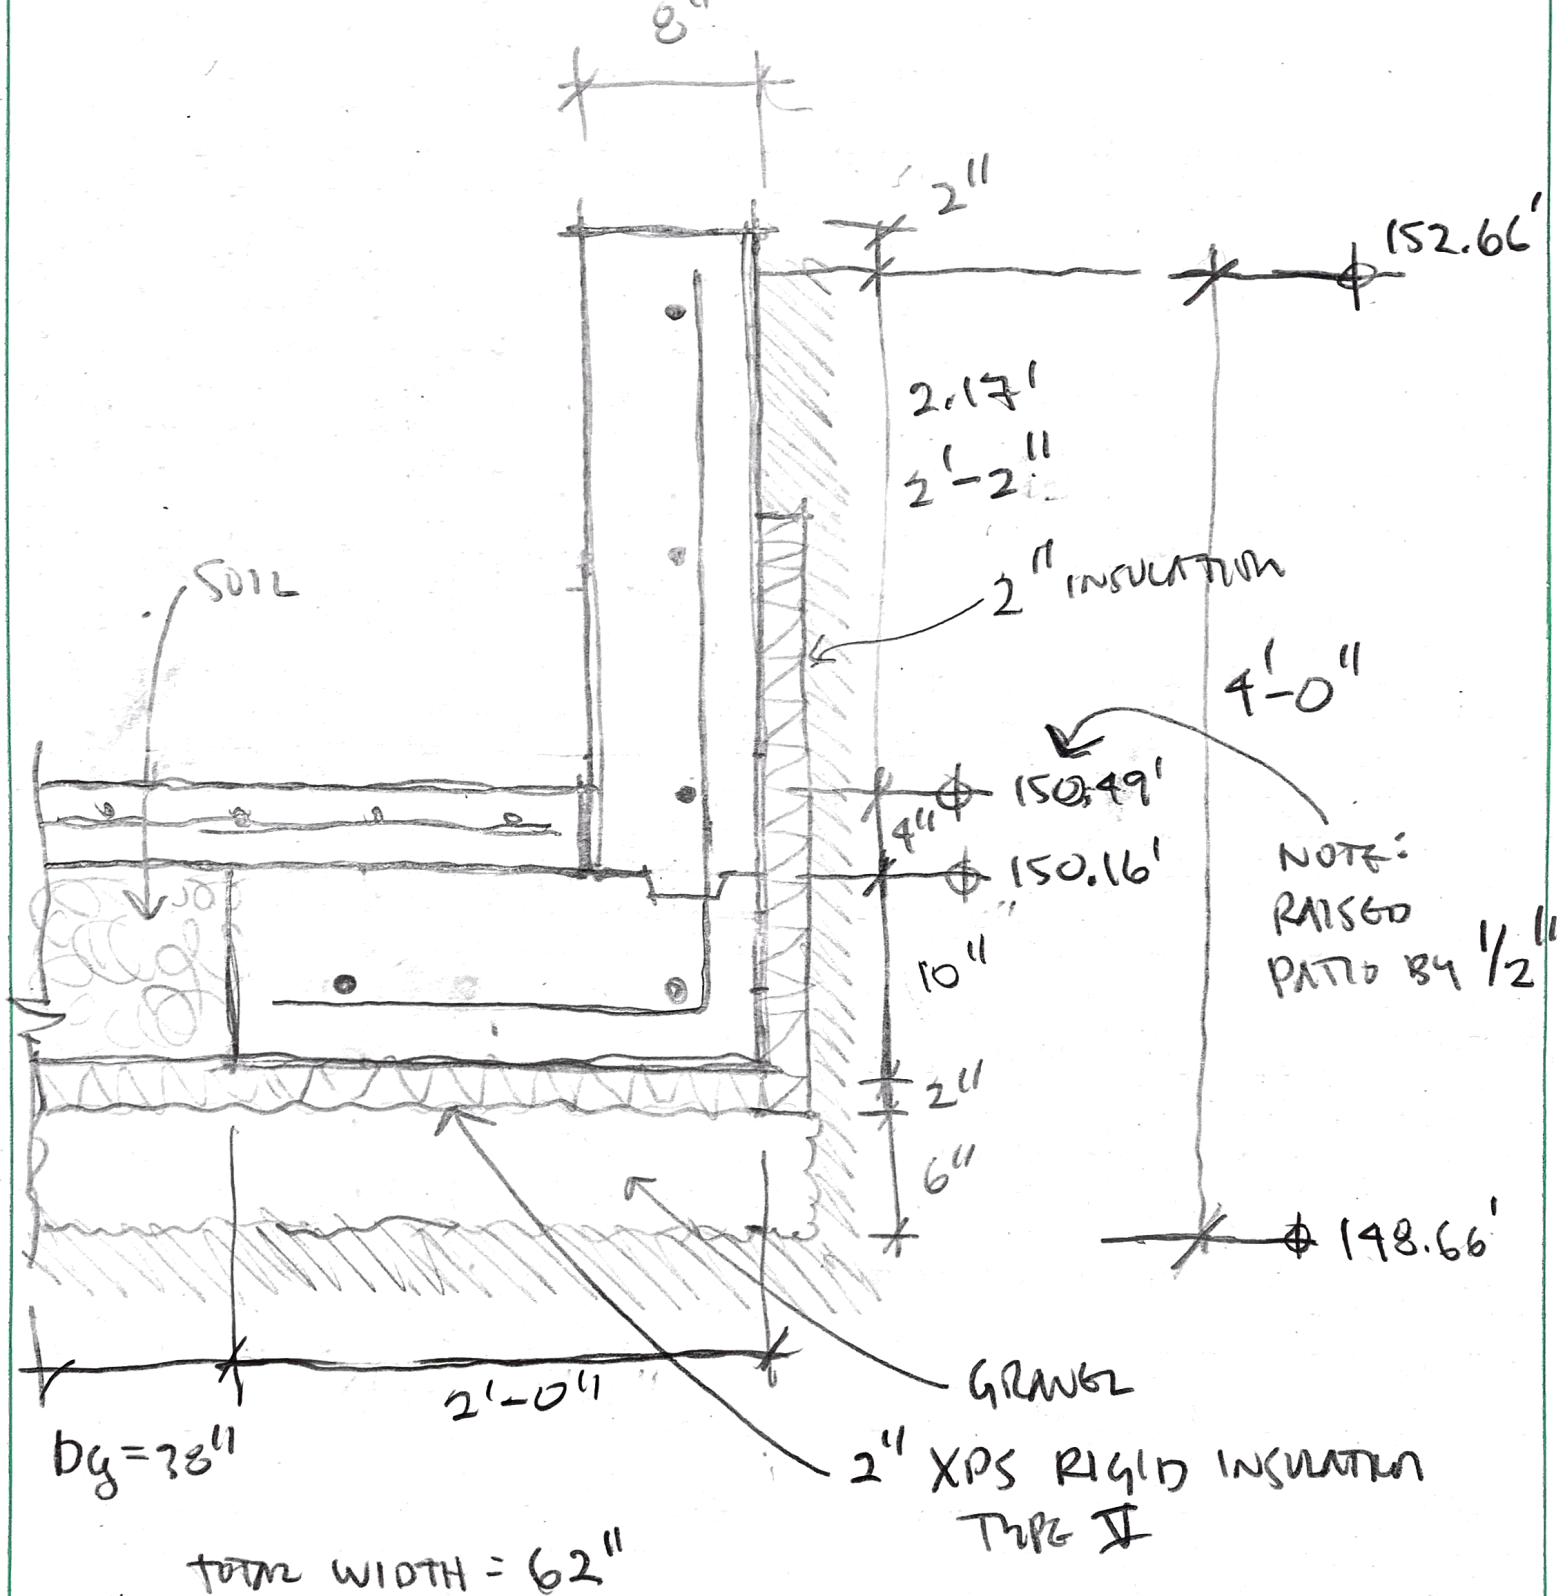 8"
2"
152.66'
2.17'
2'-2"
SOIL
2" INSULATION
4'-0"
150.49'
4"
150.16'
NOTE:
RAISED
PATIO BY 1/2"
10"
2"
6"
148.66'
2'-0"
GRAVEL
bg = 38"
2" XPS RIGID INSULATION
TYPE VI
TOTAL WIDTH = 62"